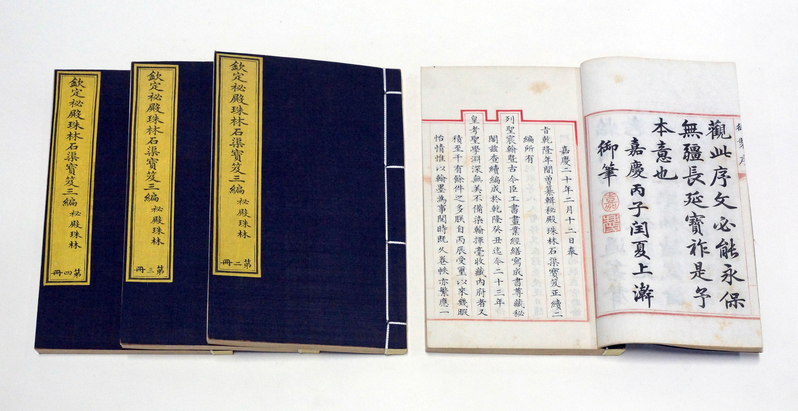 觀此序文必能永保
無疆長延寶祚是予
本意也
嘉慶丙子閏夏上澣
御筆
嘉慶二十年二月十二日奉
旨乾隆年間曾纂輯秘殿珠林石渠寶笈正續二
編所有
列聖宸翰暨古今臣工書畫業經繕寫成書尊藏秘
閣茲查續編成於乾隆癸丑迄今二十三年
皇考聖學淵深無美不備染翰揮毫收藏內府者又
積至千有餘件之多朕自丙辰受璽以來幾暇
怡情惟以翰墨為事閱時既久卷帙亦繁應一
欽定秘殿珠林石渠寶笈三編 秘殿珠林
第二冊
欽定秘殿珠林石渠寶笈三編 秘殿珠林
第三冊
欽定秘殿珠林石渠寶笈三編 秘殿珠林
第四冊